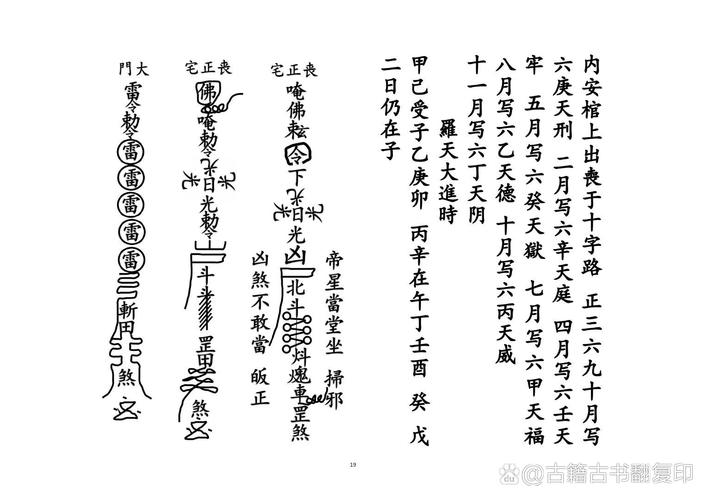 内安棺上出喪于十字路 正三六九十月写
六庚天刑 二月写六辛天庭 四月写六壬天
牢 五月写六癸天獄 七月写六甲天福
八月写六乙天德 十月写六丙天威
十一月写六丁天阴
羅天大進時
甲己受子乙庚卯 丙辛在午丁壬酉 癸戊
二日仍在子
喪正宅
帝星當堂坐 掃邪
唵佛令下光光日光光凶北斗車罡煞
凶煞不敢當 皈正
喪正宅
佛唵勅令光光日光光勅令斗罡田煞
大門
雷令勅令雷雷雷雷雷斬田煞
19
古籍古书翻复印